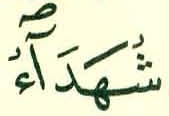 شُهَدَآءُ